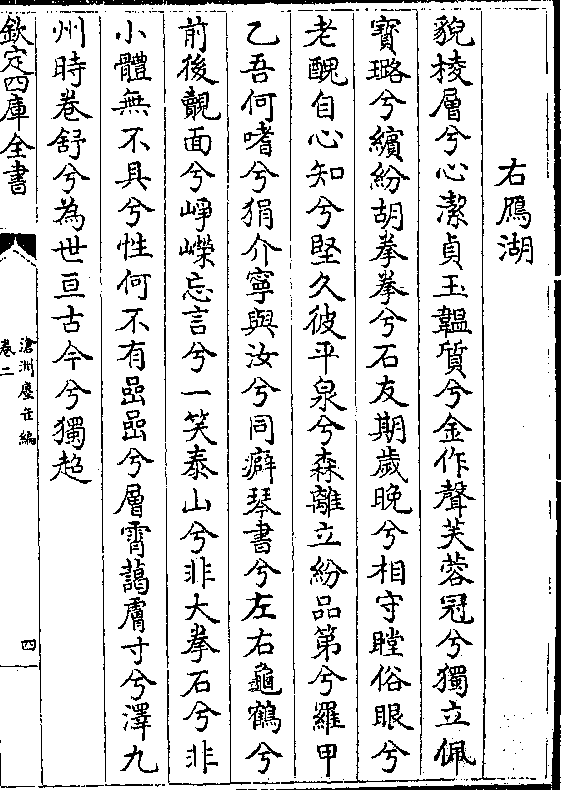 右鴈湖
貌棱層兮心潔貞玉韞質兮金作聲芙蓉冠兮獨立佩
寳璐兮繽紛胡拳拳兮石友期歲晚兮相守瞠俗眼兮
老醜自心知兮堅久彼平泉兮森離立紛品第兮羅甲
乙吾何嗜兮狷介寧與汝兮同癖琴書兮左右龜鶴兮
前後覿面兮崢嶸忘言兮一笑泰山兮非大拳石兮非
小體無不具兮性何不有嵒嵒兮層霄藹膚寸兮澤九
州時卷舒兮為世亘古今兮獨超
欽定四庫全書
滄洲塵缶編
卷二
四